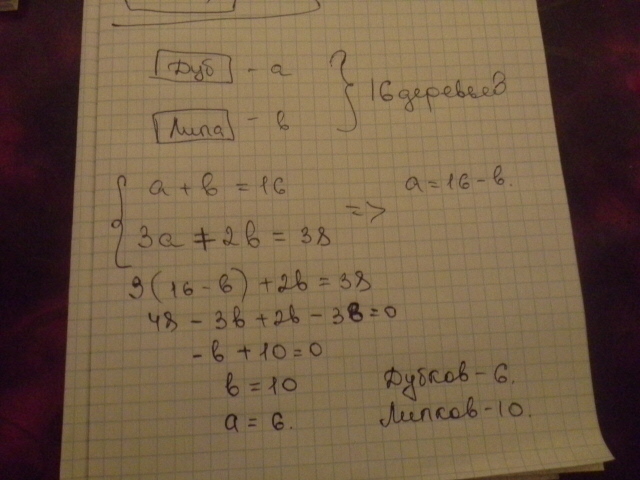 Дуб - а
16 деревьев
Липа - в
а + в = 16
=> а = 16 - в.
3а + 2в = 38
3(16 - в) + 2в = 38
48 - 3в + 2в - 38 = 0
-в + 10 = 0
в = 10
Дубков - 6.
а = 6.
Липков - 10.